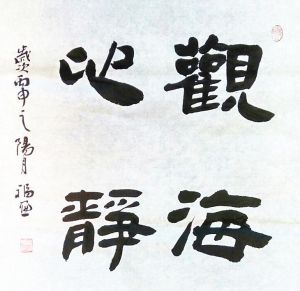 觀海
心靜
歲次丙申之陽月